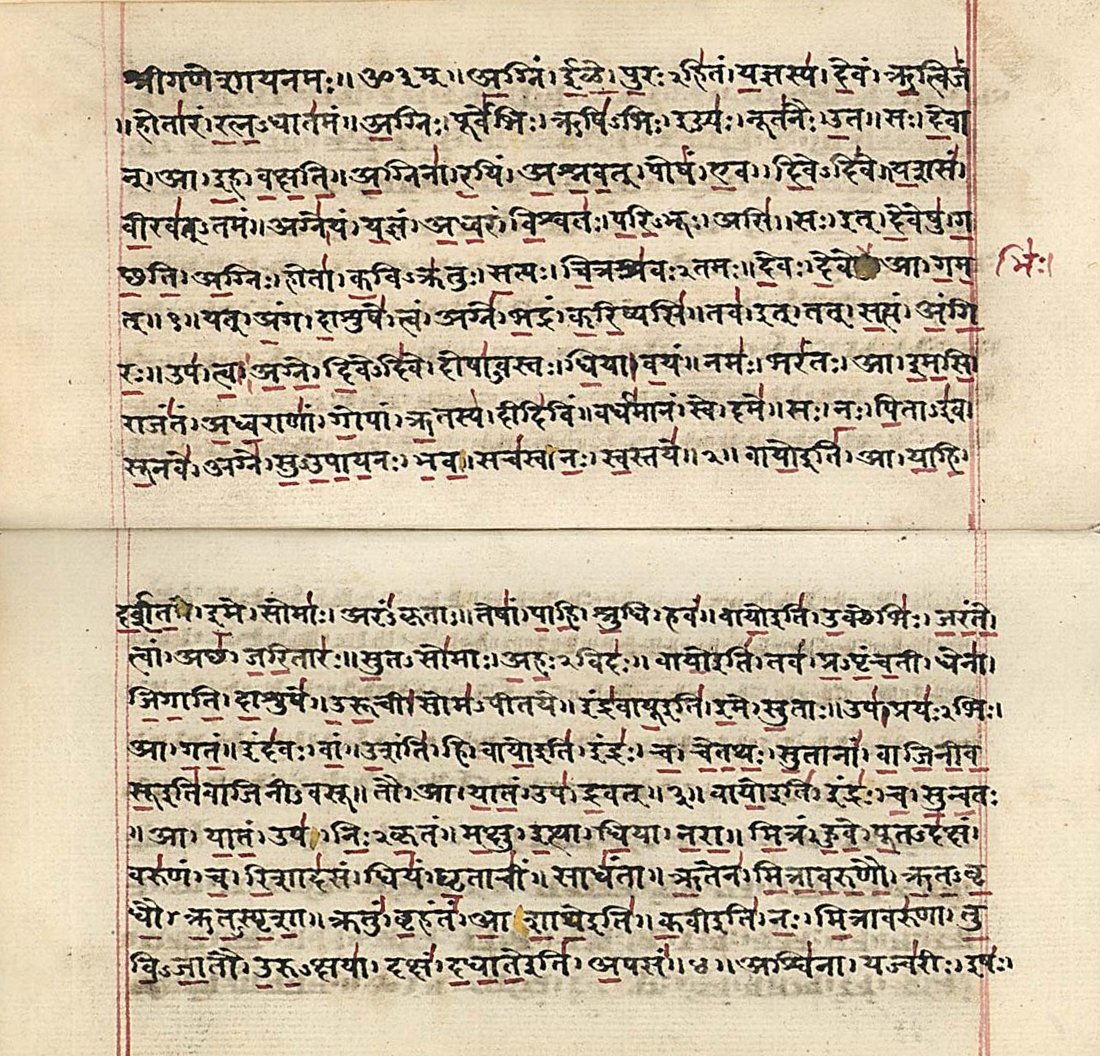 श्रीगणेशायनमः॥ॐ३म्॥अ॒ग्निं। ई॒ळे॒। पु॒रःऽहि॑तं। य॒ज्ञस्य॑। दे॒वं। ऋ॒त्विजं॑
॥होता॑रं। र॒त्न॒ऽधात॑मं॥ अ॒ग्निः। पूर्वे॑भिः। ऋषि॑ऽभिः। ईड्यः॑। नूत॑नैः। उ॒त॥ सः। दे॒वा
न्। आ। इ॒ह। व॒क्ष॒ति॒॥ अ॒ग्निना॑। र॒यिं। अ॒श्न॒व॒त्। पोषं॑। ए॒व। दि॒वेऽदि॑वे॥ य॒शसं॑
वी॒रव॑त्ऽतमं॥ अग्ने॑। यं। य॒ज्ञं। अ॒ध्व॒रं। वि॒श्वतः॑। प॒रि॒ऽभूः। असि॑॥ सः। इत्। दे॒वेषु॑। ग॒
च्छ॒ति॒। अ॒ग्निः। होता॑। क॒विऽक्र॑तुः। स॒त्यः। चि॒त्रश्र॑वःऽतमः॥ दे॒वः। दे॒वे आ। ग॒म॒ भिः॑।
त्॥१॥ यत्। अं॒ग। दा॒शुषे॑। त्वं। अग्ने॑। भ॒द्रं। क॒रि॒ष्यसि॑॥ तव॑। इत्। तत्। स॒त्यं। अं॒गि॒
रः॒॥ उप॑। त्वा॒। अ॒ग्ने॒। दि॒वेऽदि॑वे। दोषा॑ऽवस्तः। धि॒या। व॒यं॥ नमः॑। भरं॑तः। आ। इ॒म॒सि॒
राजं॑तं। अ॒ध्व॒राणां॑। गो॒पां। ऋ॒तस्य॑। दीदि॑विं॥ वर्ध॑मानं। स्वे। दमे॑॥ सः। नः॒। पि॒ताऽइ॑व
सू॒नवे॑। अग्ने॑। सु॒ऽउ॒पा॒य॒नः। भ॒व॒॥ सच॑स्व। नः॒। स्व॒स्तये॑॥२॥ वायो॒इति॑। आ। या॒हि॒
द॒र्श॒त॒। इ॒मे। सोमाः॑। अरं॑ऽकृताः॥ तेषां॑। पा॒हि॒। श्रु॒धि। हवं॑॥ वायो॒इति॑। उ॒क्थेभिः॑। ज॒रं॒ते॒
त्वां। अच्छ॑। ज॒रि॒तारः॑॥ सु॒तऽसो॑माः। अ॒हः॒ऽविदः॑॥ वायो॒इति॑। तव॑। प्र॒ऽपृं॒च॒ती। धेना॑
जि॒गा॒ति॒। दा॒शुषे॑॥ उ॒रू॒ची। सोम॑ऽपीतये॥ इंद्र॑वायू॒इति॑। इ॒मे। सु॒ताः॥ उप॑। प्रयः॑ऽभिः।
आ। ग॒तं॒॥ इंद॑वः। वां॒। उ॒शंति॑। हि॥ वायो॒इति॑। इंद्रः॑। च॒। चे॒त॒थः॒। सु॒तानां॑। वा॒जि॒नी॒व॒
सू॒इति॑वाजिनीऽवसू॥ तौ। आ। या॒तं॒। उप॑। द्र॒वत्॥३॥ वायो॒इति॑। इंद्रः॑। च॒। सु॒न्व॒तः
॥आ। या॒तं॒। उप॑। निः॒ऽकृ॒तं॥ म॒क्षु। इ॒त्था। धि॒या। न॒रा॒॥ मि॒त्रं। हु॒वे॒। पू॒तऽद॑क्षं।
वरु॑णं। च॒। रि॒शाद॑सं॥ धियं॑। घृ॒ताचीं॑। साधं॑ता॥ ऋ॒तेन॑। मि॒त्रा॒व॒रु॒णौ॒। ऋ॒त॒ऽवृ॒
धौ॒। ऋ॒त॒ऽस्पृ॒शा॒॥ क्रतुं॑। बृ॒हंतं॑। आ॒शा॒थे॒इति॑॥ क॒वीइति॑। नः॒। मि॒त्रावरु॑णा। तु॒
वि॒ऽजा॒तौ। उ॒रु॒ऽक्षया॑। दक्षं॑। द॒धा॒ते॒इति॑। अ॒पसं॑॥४॥ अश्वि॑ना। यज्व॑रीः। इषः॑।